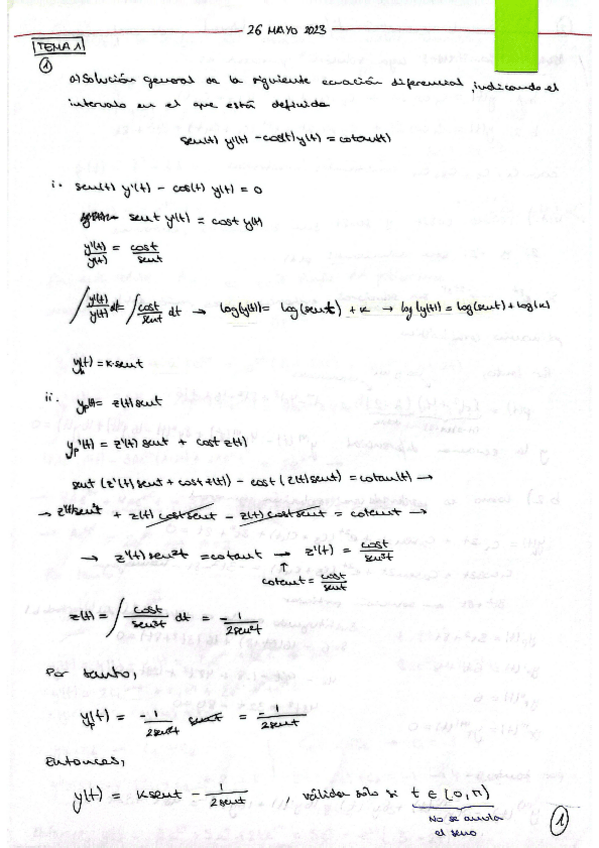 26 MAYO 2023
TEMA 1
①
a) Solución general de la siguiente ecuación diferencial, indicando el
intervalo en el que está definida
sen(t) y'(t) - cos(t) y(t) = cotan(t)
i. sen(t) y'(t) - cos(t) y(t) = 0
sent y'(t) = cost y(t)
y'(t)/y(t) = cost/sent
∫ y'(t)/y(t) dt = ∫ cost/sent dt → log(y(t)) = log(sent) + k → log(y(t)) = log(sent) + log(k)
y(t) = k·sent
ii. yp(t) = z(t) sent
yp'(t) = z'(t) sent + cost z(t)
sent (z'(t) sent + cost z(t)) - cost (z(t) sent) = cotan(t) →
→ z'(t) sen²t + z(t) cost sent - z(t) cost sent = cotent →
→ z'(t) sen²t = cotant → z'(t) = cost/sen³t
↑
cotent = cost/sent
z(t) = ∫ cost/sen³t dt = -1/2sen²t
Por tanto,
yp(t) = -1/2sen²t sent = -1/2sent
Entonces,
y(t) = k sent - 1/2sent , válida sólo si t ∈ (0, π)
No se anula
el seno
①